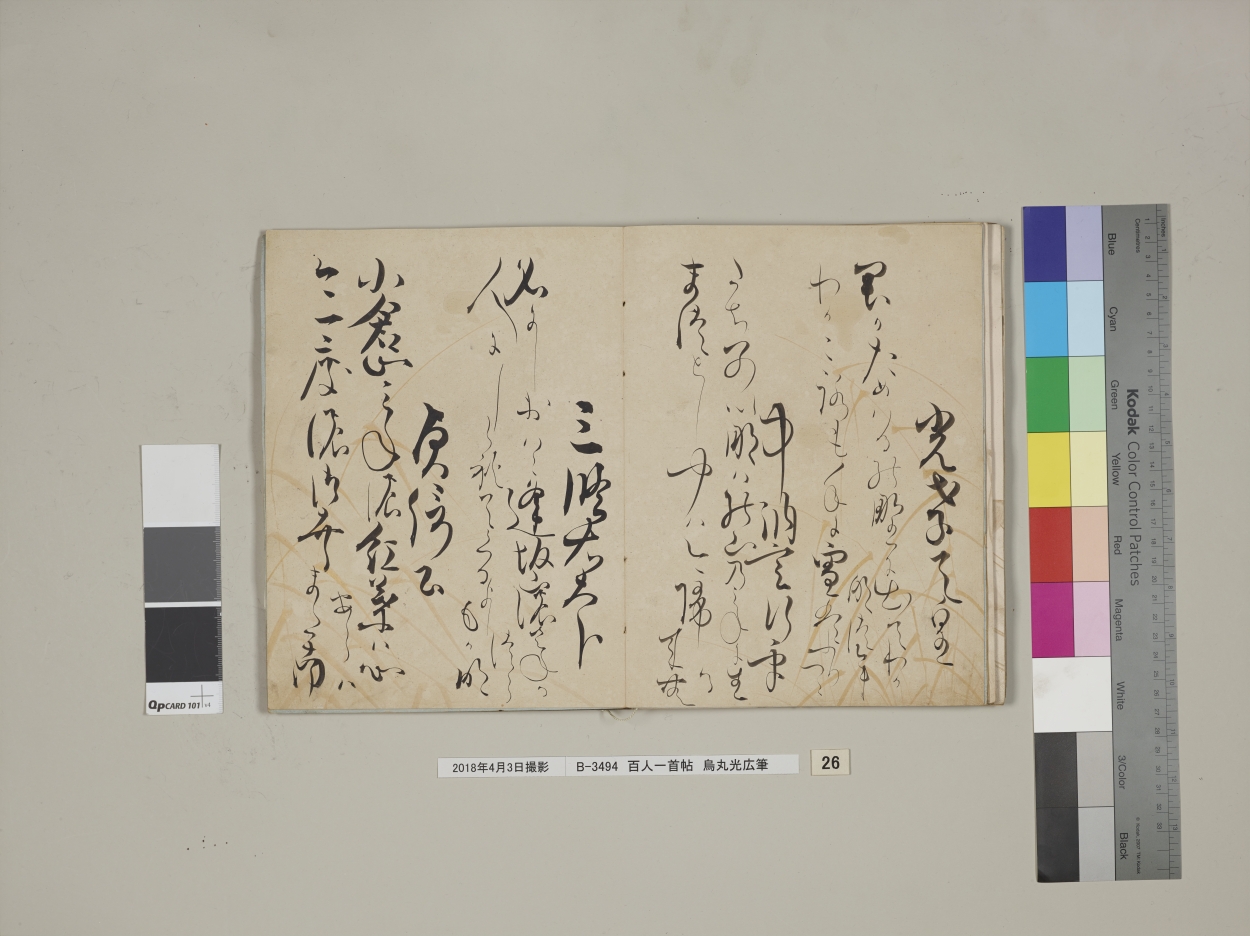 光孝天皇
君かため春の野に出てわか
なつむ
わかころも手に雪はふりつゝ
中納言行平
たちわかれいなはの山乃みねにお
ふる
まつとしきかは今帰こむ
三條右大臣
名にしおはゝ逢坂山のさねか
つら
人にしられてくるよしもかな
貞信公
小倉山みねの紅葉ゝ心
あらは
今一度のみゆきまたなむ
2018年4月3日撮影 B-3494 百人一首帖 烏丸光広筆 26
QpCARD 101 v4
Kodak Color Control Patches
Blue
Cyan
Green
Yellow
Red
Magenta
White
3/Color
Black
Centimetres
Inches